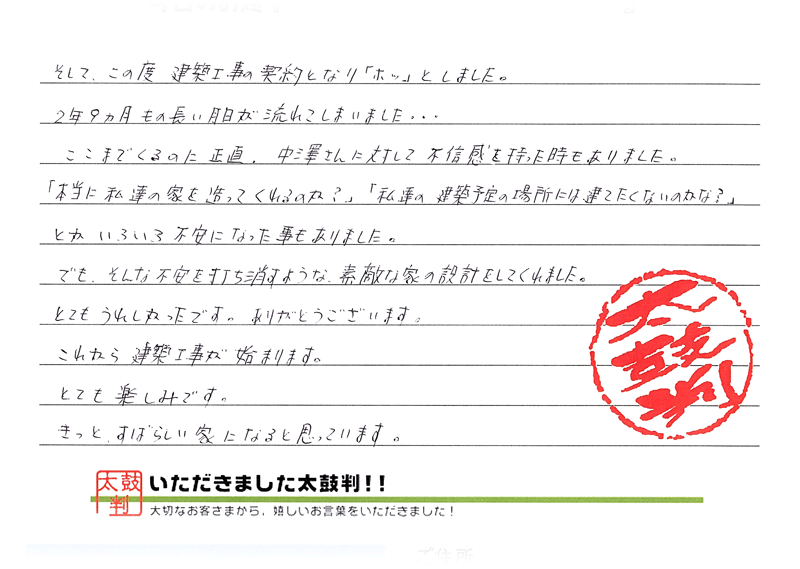 そして、この度 建築工事の契約となり「ホッ」としました。
2年9ヵ月もの長い月日が流れてしまいました・・・
ここまでくるのに正直、中澤さんに対して不信感を持った時もありました。
「本当に私達の家を造ってくれるのか？」「私達の建築予定の場所には建てたくないのかな？」
とか いろいろ不安になった事もありました。
でも、そんな不安を打ち消すような、素敵な家の設計をしてくれました。
とてもうれしかったです。ありがとうございます。
これから 建築工事が始まります。
とても楽しみです。
きっと、すばらしい家になると思っています。
太鼓判
太鼓判
いただきました太鼓判！！
大切なお客さまから、嬉しいお言葉をいただきました！
ご住所